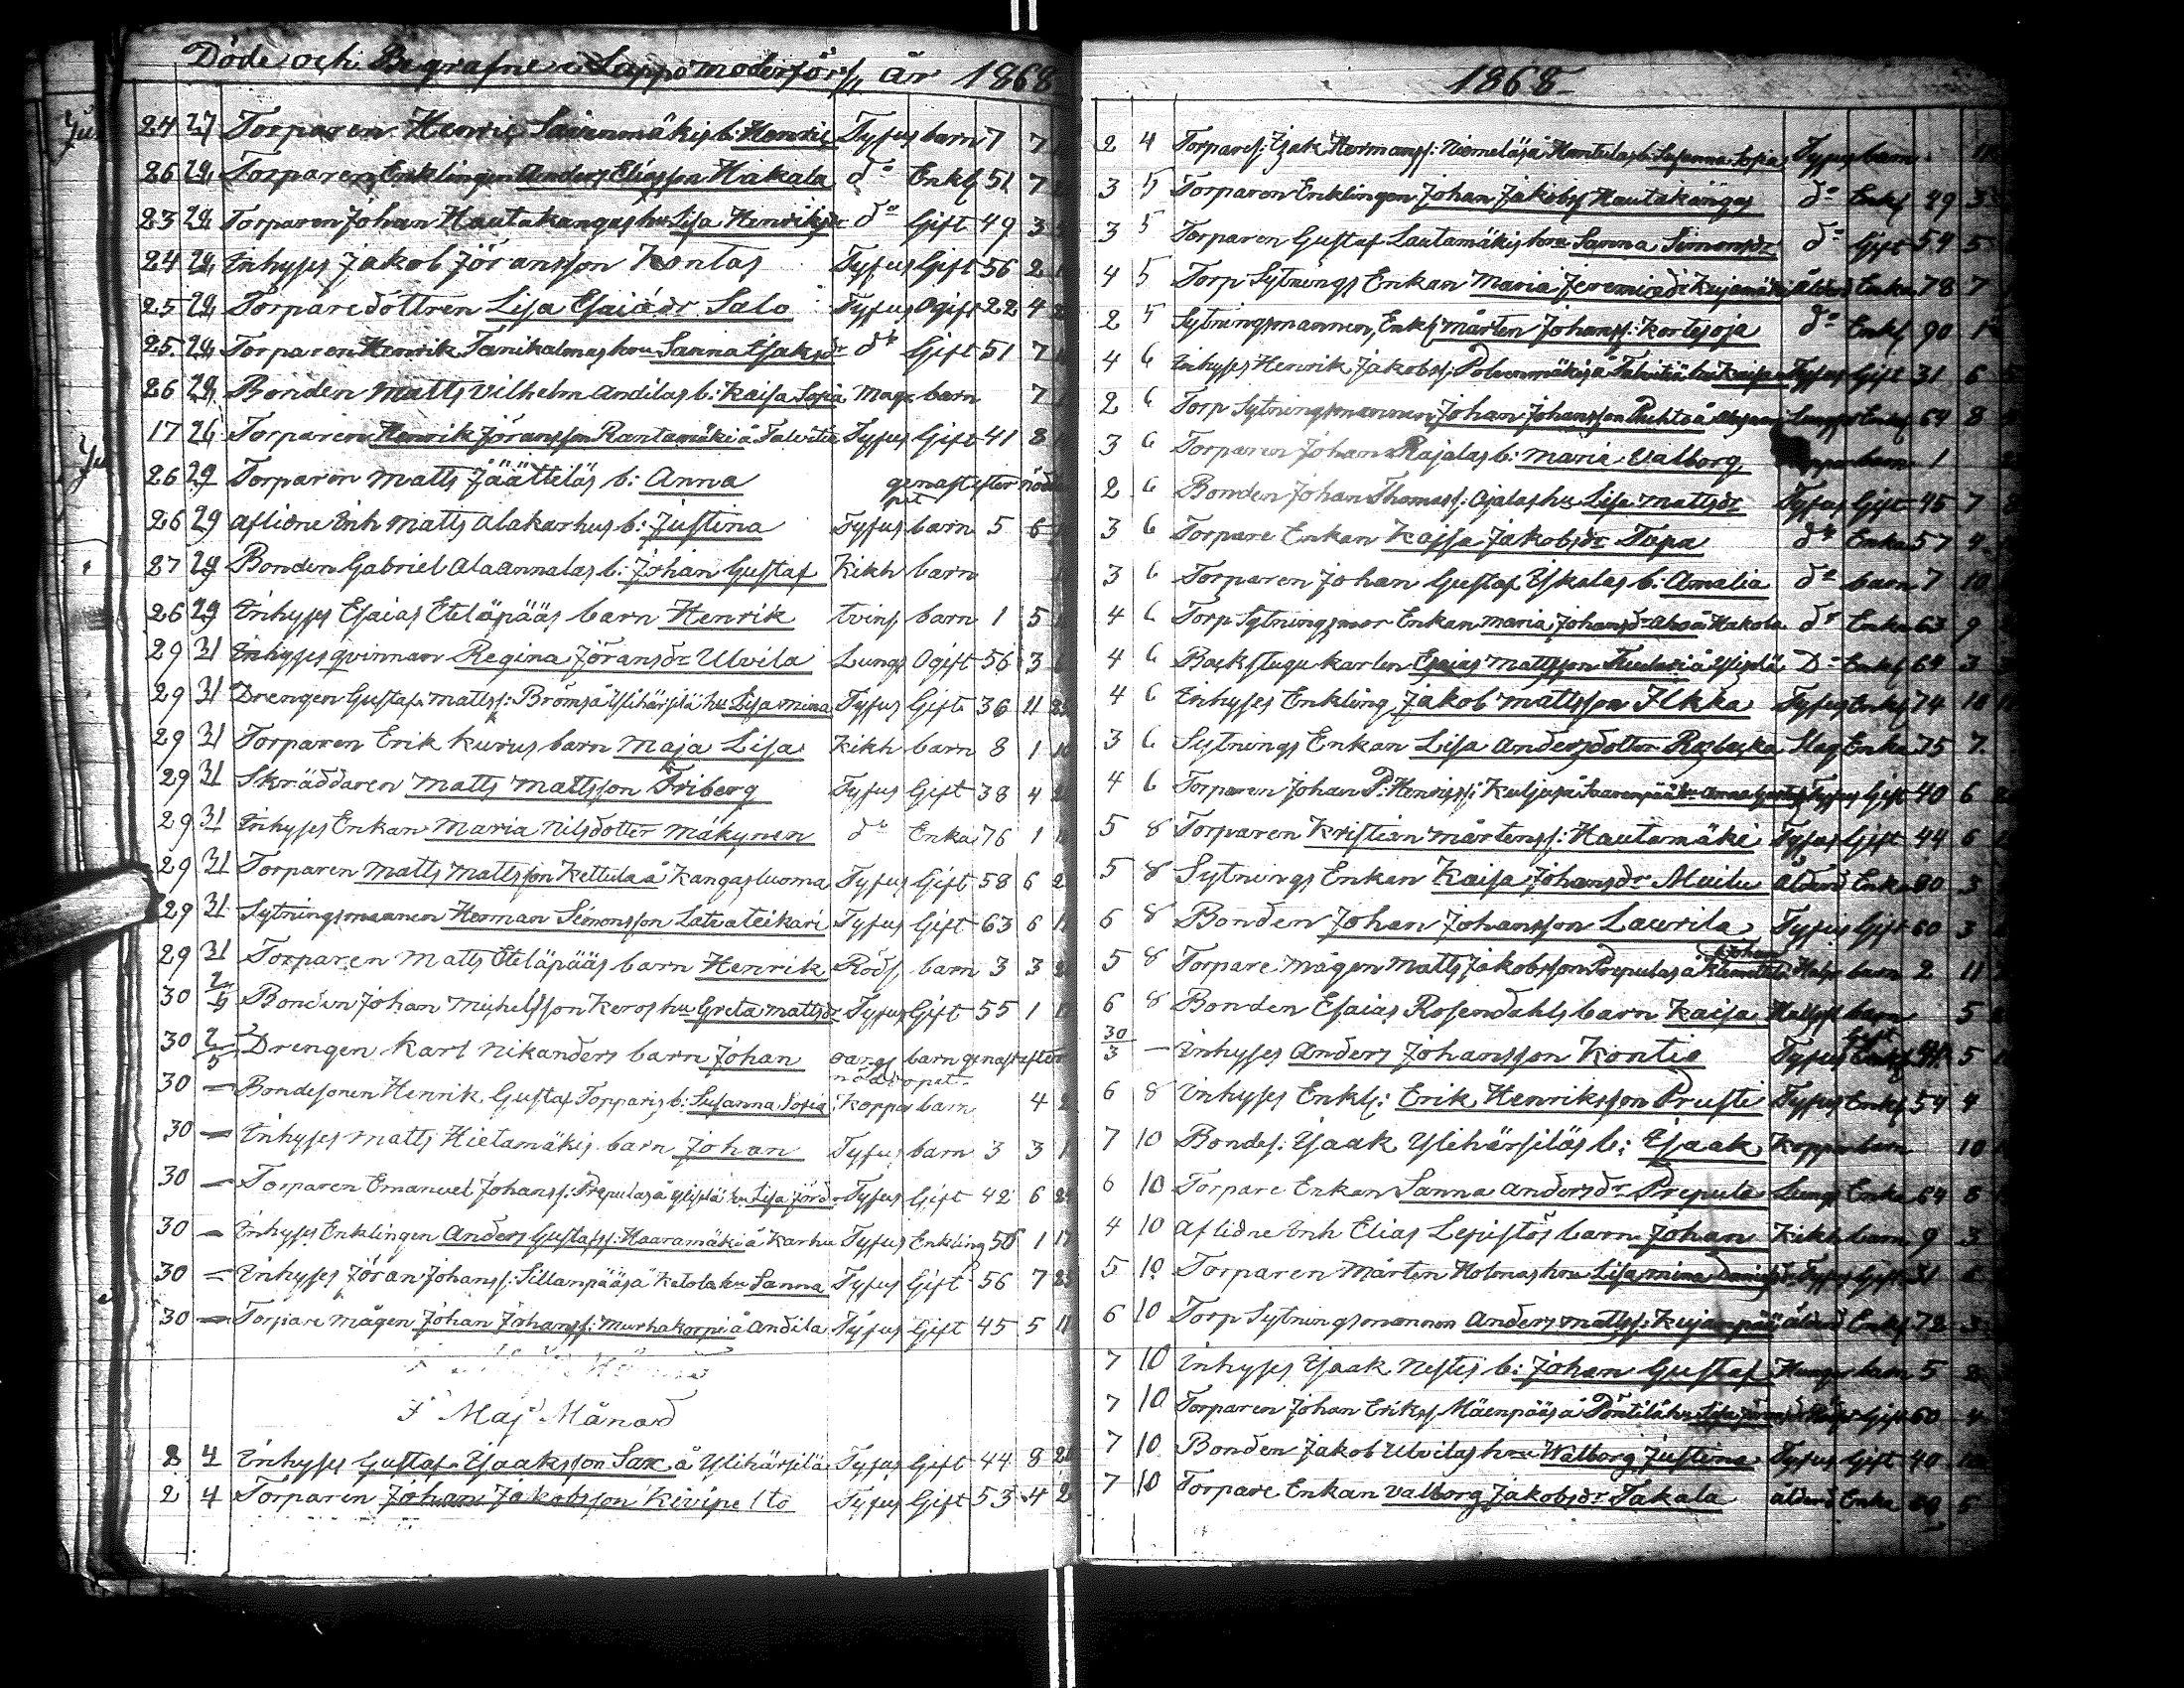 Döde och Begrafne i Lappo moderförs/ år 1868
24 27 Torparen Henric b: Henric Tyfus barn 7 7
26 28 Torparen Enklingen Anders Eliasson Hakala do Enkl 51 7
23 28 Torparen Johan Hautakangas hu Lisa Henriksdr do Gift 49 3
24 28 Inhyses Jakob Jöransson Kontas Tyfus Gift 56 2
25 28 Torparedottren Lisa Esaiædr Salo Tyfus Ogift 22 4
25 28 Torparen Henrik hru Sanna Isaksdr do Gift 51 7
26 28 Bonden Matts Vilhelm Andilas b: Kaisa Sofia Mags barn 7
17 26 Torparen Henrik Jöransson Rantamäki å Talvitie Tyfus Gift 41 8
26 29 Torparen Matts Jäätteläs b: Anna genast efter nöd
26 29 Aflidne Inh Matts Alakarhus b: Justina Tyfus barn 5 6
27 29 Bonden Gabriel Alaannalas b: Johan Gustaf Kikh barn
26 29 Inhyses Esaias Eteläpääs barn Henrik tvins barn 1 5
29 31 Inhyses qvinnan Regina Jöransdr Ulvila Lungs Ogift 56 3
29 31 Drengen Gustaf Mattss: Brömså Ylihärsilä hu Lisa Mina Tyfus Gift 36 11
29 31 Torparen Erik Kurus barn Maja Lisa Kikh barn 8 1
29 31 Skräddaren Matts Mattsson Friberg Tyfus Gift 38 4
29 31 Inhyses Enkan Maria Nilsdotter Mäkynen do Enka 76 1
29 31 Torparen Matts Mattsson Kettula å Kangasluoma Tyfus Gift 58 6
29 31 Sytningsmannen Herman Simonsson Latvateikari Tyfus Gift 63 6
29 31 Torparen Matts Eteläpääs barn Henrik Röds. barn 3 3
30 2/5 Bonden Johan Michelsson Keros hu Greta Mattsdr Tyfus Gift 55 1
30 2/5 Drengen Karl Nikanders barn Johan oangf barn genast efter
nöddopet
30 — Bondesonen Henrik Gustaf Topparis b: Susanna Sofia Koppor barn 4
30 — Inhyses Matts Hietamäkis barn Johan Tyfus barn 3 3
30 — Torparen Emanuel Johanss: Prepulas å Ylisilä hu Lisa Jördr Tyfus Gift 42 6
30 — Inhyses Enklingen Anders Gustafss: Haaramäki å Karhu Tyfus Enkling 50 1
30 — Inhyses Jöran Johanss: Sillanpääs å Katola hu Sanna Tyfus Gift 56 7
30 — Torpare mågen Johan Johanss: Murhakorpi å Andila Tyfus Gift 45 5
I Maj Månad
2 4 Inhyses Gustaf Isaaksson Sax å Ylihärsilä Tyfus Gift 44 8
2 4 Torparen Johan Jakobsson Kivipelto Tyfus Gift 53 4
1868
2 4 Torpares: Isak Hermanss: Niemeläs å Hantulas b: Susanna Sofia Tyfus barn
3 5 Torparen Enklingen Johan Jakobss Hautakangas do Enkl 29 3
3 5 Torparen Gustaf Lautamäkis hru Sanna Simonsdr do Gift 54 5
4 5 Torp Sytnings Enkan Maria Jeremiædr ålderd Enka 78 7
2 5 Sytningsmannen, Enkl: Mårten Johanss: Kortesoja do Enkl 90 1
4 6 Inhyses Henrik Jakobss: Polvenmäkis å Talvitiä hu Kaisa Tyfus Gift 31 6
2 6 Torp Sytningsmannen Johan Johansson Ruhto å Enkl 64 8
3 6 Torparen Johan Rajalas b: Maria Valborg barn 1
2 6 Bonden Johan Thomass: Ojalas hu Lisa Mattsdr Tyfus Gift 45 7
3 6 Torpare Enkan Kajsa Jakobsdr Topa do Enka 57
3 6 Torparen Johan Gustaf Yskalas b: Amalia do barn 7 10
4 6 Torp Sytningsmor Enkan Maria Johansdr Aho å Hakola do Enka 63 9
4 6 Backstugukarlen Esaias Mattsson å Ylisilä Do Enkl 64 3
4 6 Inhyses Enkling Jakob Mattsson Ilkka Tyfus Enkl 74 10
3 6 Sytnings Enkan Lisa Andersdotter Slag Enka 75 7
4 6 Torparen Johan P: Henrikss: Kuljus å Saarenpää hu Anna Tyfus Gift 40 6
5 8 Torparen Kristian Mårtenss: Hautamäki Tyfus Gift 44 6
5 8 Sytnings Enkan Kaisa Johansdr Muilu ålderd Enka 80 3
6 8 Bonden Johan Johansson Laurila Tyfus Gift 60 3
5 8 Torpare mågen Matts Jakobsson Prepulas å b. Johan barn 2 11
6 8 Bonden Esaias Rosendahls barn Kaisa barn 5
30/3 — Inhyses Anders Johansson Kontio Tyfus Gift 5
6 8 Inhyses Enkl: Erik Henriksson Prusti Tyfus Enkl 54 4
7 10 Bondes: Isaak Ylihärsiläs b: Isaak Koppor barn 10
6 10 Torpare Enkan Sanna Andersdr Prepula Lungs Enka 64 8
4 10 Aflidne Inh Elias Lepistös barn Johan Kikh barn 9 3
5 10 Torparen Mårten Holmas hru Lisa Mina Tyfus Gift 31
6 10 Torp Sytningsmannen Anders Mattss: Kujanpää ålderd Enkl 72 3
7 10 Inhyses Isaak Nestis b: Johan Gustaf Hunger barn 5
7 10 Torparen Johan Erikss Mäenpääs å Pöntilä hu Lisa Gift 60
7 10 Bonden Jakob Ulvilas hru Walborg Justina Tyfus Gift 40
7 10 Torpare Enkan Valborg Jakobsdr Takala ålderd Enka 5